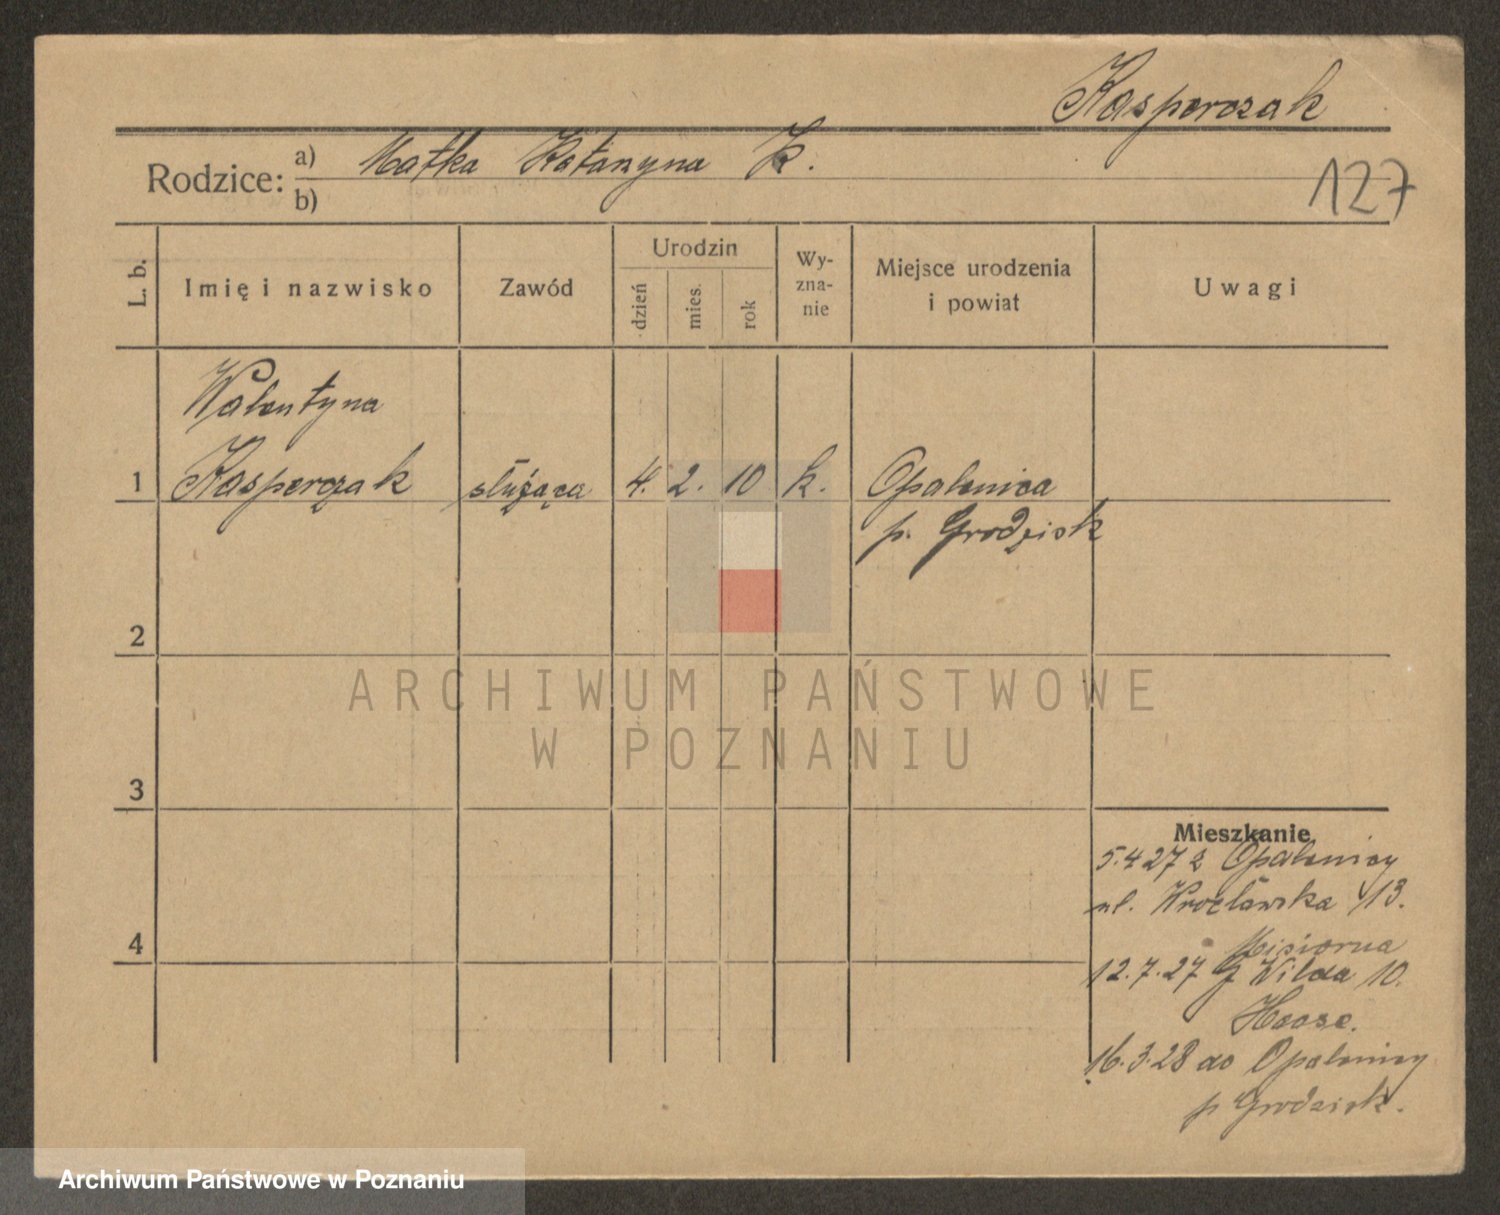 Kasperczak
127
Rodzice: a) Matka Katarzyna K.
b)
L. b. Imię i nazwisko Zawód Urodzin dzień mies. rok Wy-zna-nie Miejsce urodzenia i powiat Uwagi
Walentyna
1 Kasperczak służąca 4. 2. 10 k. Opalenica
p. Grodzisk
2
3
4
Mieszkanie
5.4 27 z Opalenicy
ul. Wrocławska 13.
12.7.27 G Wilda 10.
Haase.
16.3.28 do Opalenicy
p Grodzisk.
ARCHIWUM PAŃSTWOWE
W POZNANIU
Archiwum Państwowe w Poznaniu